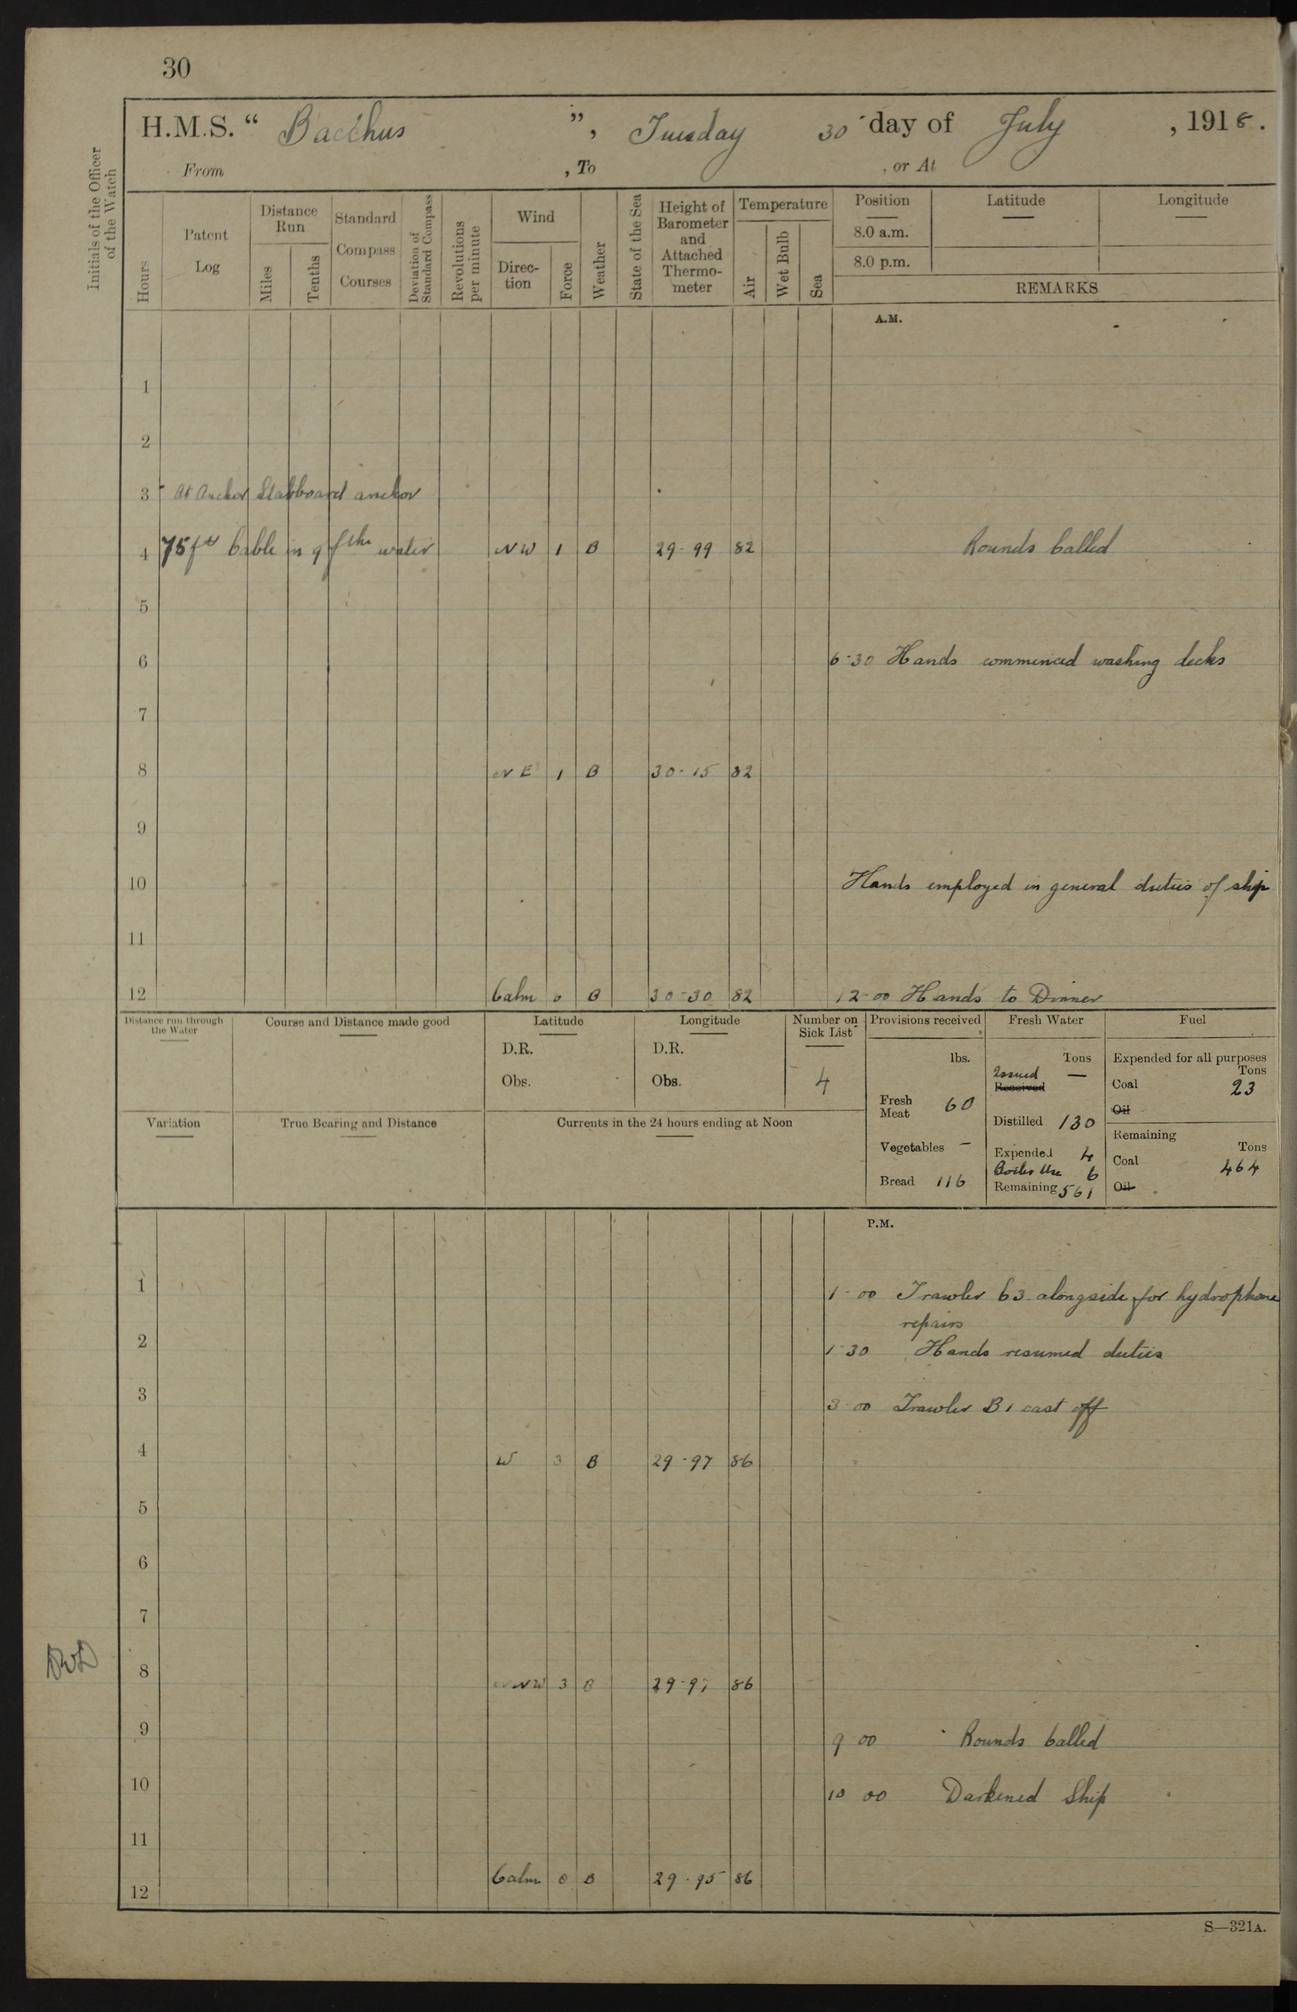 30
H.M.S. “ Bacchus ”, Tuesday 30 day of July , 1918.
From , To , or At
Initials of the Officer of the Watch
Hours
Patent Log
Distance Run
Miles
Tenths
Standard Compass Courses
Deviation of Standard Compass
Revolutions per minute
Wind
Direc-tion
Force
Weather
State of the Sea
Height of Barometer and Attached Thermo-meter
Temperature
Air
Wet Bulb
Sea
Position Latitude Longitude
8.0 a.m.
8.0 p.m.
REMARKS
A.M.
1
2
3 At Anchor Starboard anchor
4 75 fts Cable in 9 fthm water NW 1 B 29-99 82 Rounds Called
5
6 6-30 Hands commenced washing decks
7
8 NE 1 B 30-15 82
9
10 Hands employed in general duties of ship
11
12 Calm 0 B 30-30 82 12-00 Hands to Dinner
Distance run through the Water
Course and Distance made good
Latitude
D.R.
Obs.
Longitude
D.R.
Obs.
Number on Sick List
4
Variation
True Bearing and Distance
Currents in the 24 hours ending at Noon
Provisions received
lbs.
Fresh Meat 60
Vegetables –
Bread 116
Fresh Water
Tons
Issued —
Received
Distilled 130
Expended 4
Boiler Use 6
Remaining 561
Fuel
Expended for all purposes
Tons
Coal 23
Oil
Remaining
Tons
Coal 464
Oil
P.M.
1 1-00 Trawler 63 alongside for hydrophone
repairs
2 1-30 Hands resumed duties
3 3-00 Trawler B1 cast off
4 W 3 B 29-97 86
5
6
7
8 NNW 3 B 29-97 86
9 9 00 Rounds Called
10 10 00 Darkened Ship
11
12 Calm 0 B 29-95 86
S—321A.